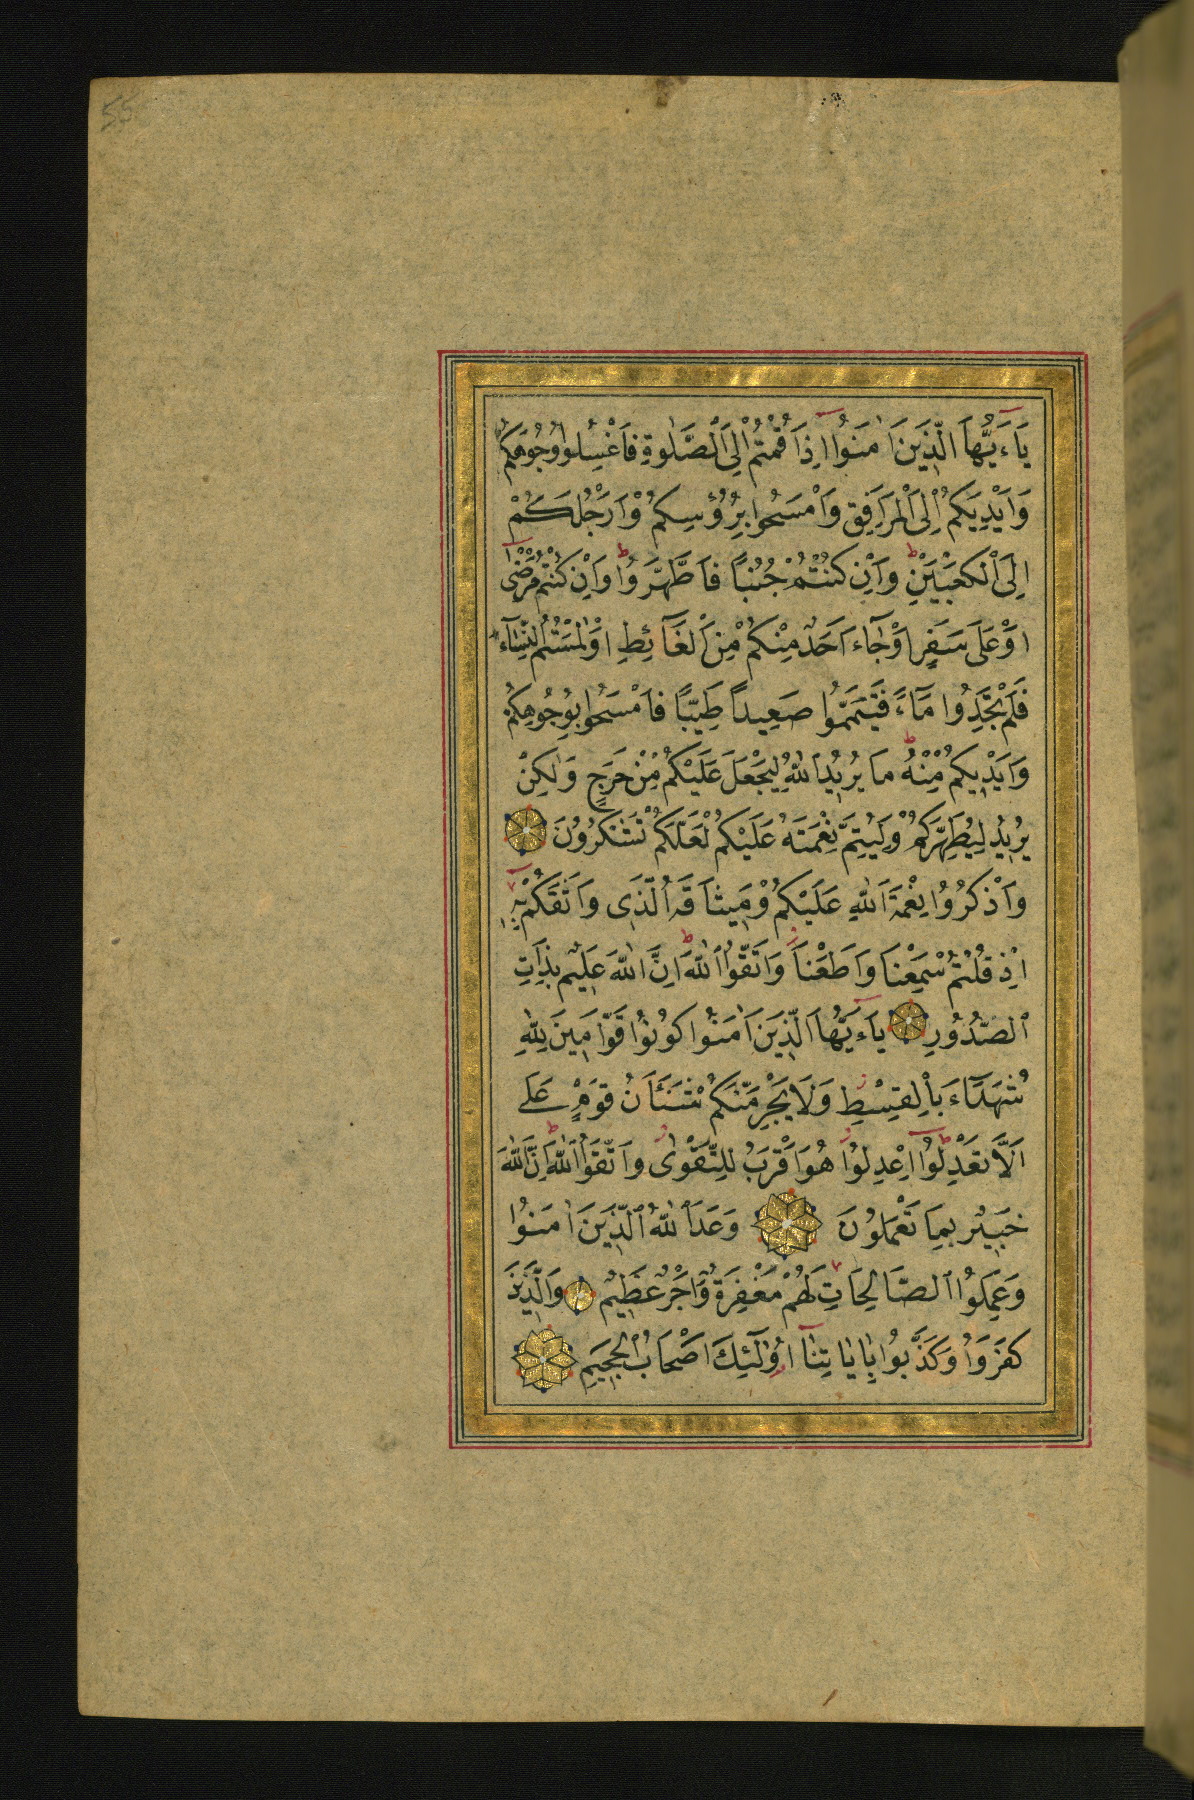 55
يَاءَيُّهَا الَّذِينَ اٰمَنُوا اِذَا قُمْتُمْ اِلَى الْصَّلٰوةِ فَاغْسِلُوا وُجُوهَكُمْ
وَاَيْدِيَكُمْ اِلَى الْمَرَافِقِ وَامْسَحُوا بِرُؤُسِكُمْ وَاَرْجُلَكُمْ
اِلَى الْكَعْبَيْنِ وَاِنْ كُنْتُمْ جُنُبًا فَاطَّهَّرُوا وَاِنْ كُنْتُمْ مَرْضٰى
اَوْ عَلَى سَفَرٍ اَوْ جَاءَ اَحَدٌ مِنْكُمْ مِنَ الْغَائِطِ اَوْ لٰمَسْتُمُ النِّسَاءَ
فَلَمْ تَجِدُوا مَاءً فَتَيَمَّمُوا صَعِيدًا طَيِّبًا فَامْسَحُوا بِوُجُوهِكُمْ
وَاَيْدِيكُمْ مِنْهُ مَا يُرِيدُ اللّٰهُ لِيَجْعَلَ عَلَيْكُمْ مِنْ حَرَجٍ وَلٰكِنْ
يُرِيدُ لِيُطَهِّرَكُمْ وَلِيُتِمَّ نِعْمَتَهُ عَلَيْكُمْ لَعَلَّكُمْ تَشْكُرُونَ
وَاذْكُرُوا نِعْمَةَ اللّٰهِ عَلَيْكُمْ وَمِيثَاقَهُ الَّذِى وَاثَقَكُمْ بِهِ
اِذْ قُلْتُمْ سَمِعْنَا وَاَطَعْنَا وَاتَّقُوا اللّٰهَ اِنَّ اللّٰهَ عَلِيمٌ بِذَاتِ
الصُّدُورِ يَاءَيُّهَا الَّذِينَ اٰمَنُوا كُونُوا قَوَّامِينَ لِلّٰهِ
شُهَدَاءَ بِالْقِسْطِ وَلَا يَجْرِمَنَّكُمْ شَنَئَانُ قَوْمٍ عَلَى
اَلَّا تَعْدِلُوا اِعْدِلُوا هُوَ اَقْرَبُ لِلتَّقْوٰى وَاتَّقُوا اللّٰهَ اِنَّ اللّٰهَ
خَبِيرٌ بِمَا تَعْمَلُونَ وَعَدَ اللّٰهُ الَّذِينَ اٰمَنُوا
وَعَمِلُوا الصَّالِحَاتِ لَهُمْ مَغْفِرَةٌ وَاَجْرٌ عَظِيمٌ وَالَّذِينَ
كَفَرُوا وَكَذَّبُوا بِاٰيَاتِنَا اُولٰئِكَ اَصْحَابُ الْجَحِيمِ